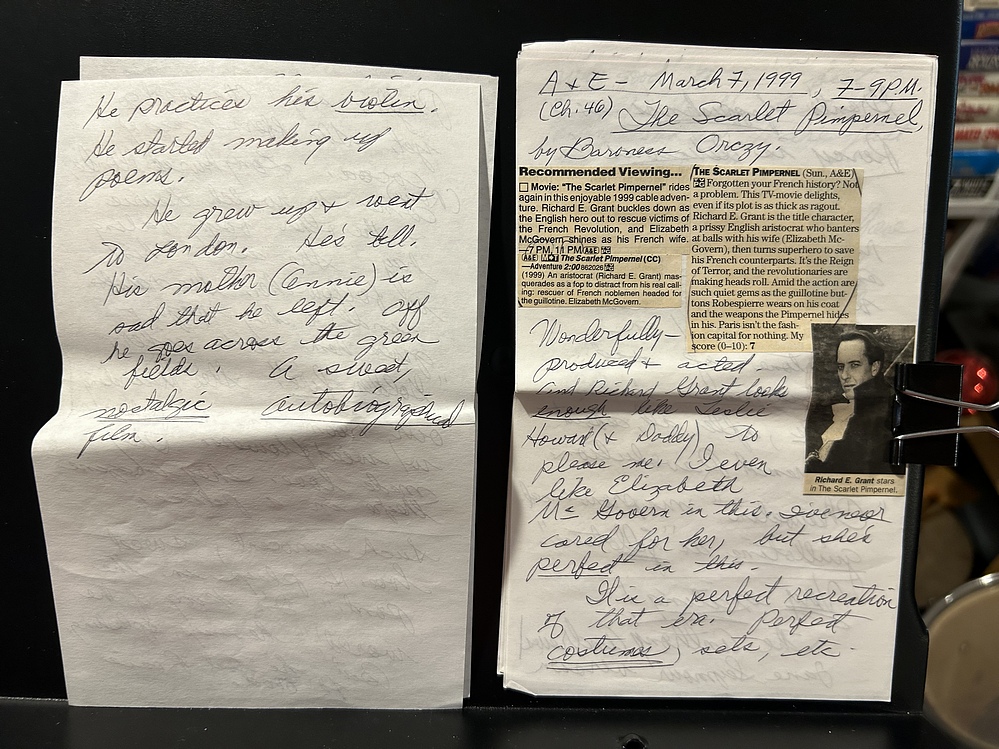 He practices his violin.
He started making up
poems.
He grew up & went
to London. He's tall.
His mother (Annie) is
sad that he left. Off
he goes across the green
fields. A sweet,
nostalgic autobiographical
film.
A & E - March 7, 1999, 7-9 P.M.
(Ch. 46) The Scarlet Pimpernel,
by Baroness Orczy.
Recommended Viewing...
☐ Movie: "The Scarlet Pimpernel" rides
again in this enjoyable 1999 cable adven-
ture. Richard E. Grant buckles down as
the English hero out to rescue victims of
the French Revolution, and Elizabeth
McGovern shines as his French wife.
—7 PM, 11 PM A&E
A&E MOT The Scarlet Pimpernel (CC)
—Adventure 2:00 862026
(1999) An aristocrat (Richard E. Grant) mas-
querades as a fop to distract from his real call-
ing: rescuer of French noblemen headed for
the guillotine. Elizabeth McGovern.
THE SCARLET PIMPERNEL (Sun., A&E)
Forgotten your French history? Not
a problem. This TV-movie delights,
even if its plot is as thick as ragout.
Richard E. Grant is the title character,
a prissy English aristocrat who banters
at balls with his wife (Elizabeth Mc-
Govern), then turns superhero to save
his French counterparts. It's the Reign
of Terror, and the revolutionaries are
making heads roll. Amid the action are
such quiet gems as the guillotine but-
tons Robespierre wears on his coat
and the weapons the Pimpernel hides
in his. Paris isn't the fash-
ion capital for nothing. My
score (0–10): 7
Richard E. Grant stars
in The Scarlet Pimpernel.
Wonderfully-
produced & acted.
And Richard Grant looks
enough like Leslie
Howard (& Daddy) to
please me. I even
like Elizabeth
Mc Govern in this. I never
cared for her, but she's
perfect in this.
It is a perfect recreation
of that era. Perfect
costumes, sets, etc.